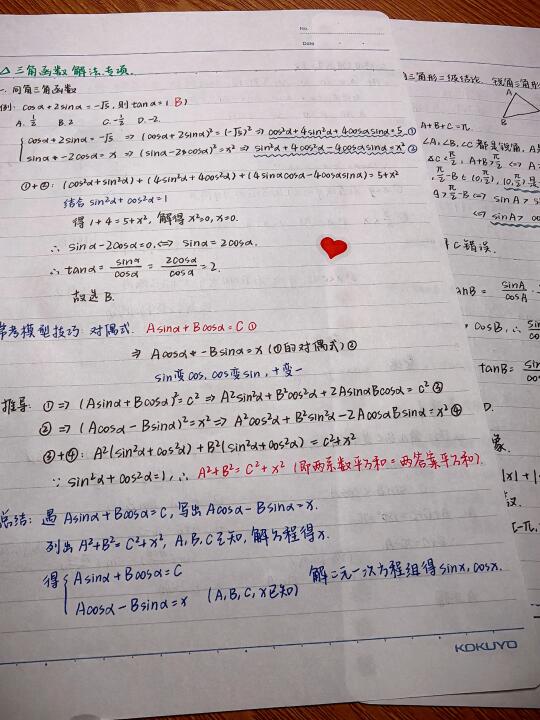 No.
Date
△ 三角函数 解法专项.
一. 同角三角函数
例: cosα+2sinα=-√5, 则tanα=( B )
A. 1/2 B. 2 C. -1/2 D. -2
cosα+2sinα=-√5 ⇒ (cosα+2sinα)²=(-√5)² ⇒ cos²α+4sin²α+4cosαsinα=5 ①
sinα-2cosα=x ⇒ (sinα-2cosα)²=x² ⇒ sin²α+4cos²α-4cosαsinα=x² ②
①+②: (cos²α+sin²α)+(4sin²α+4cos²α)+(4sinαcosα-4cosαsinα)=5+x²
结合 sin²α+cos²α=1
得 1+4=5+x², 解得 x²=0, x=0.
∴ sinα-2cosα=0, ⇔ sinα=2cosα.
∴ tanα= sinα/cosα = 2cosα/cosα =2.
故选 B.
常考模型技巧 对偶式. Asinα+Bcosα=C ①
⇒ Acosα-Bsinα=x (①的对偶式) ②
sin变cos, cos变sin, +变-
推导: ① ⇒ (Asinα+Bcosα)²=C² ⇒ A²sin²α+B²cos²α+2AsinαBcosα=C² ③
② ⇒ (Acosα-Bsinα)²=x² ⇒ A²cos²α+B²sin²α-2AcosαBsinα=x² ④
③+④: A²(sin²α+cos²α)+B²(sin²α+cos²α)=C²+x²
∵ sin²α+cos²α=1, ∴ A²+B²=C²+x² (即两系数平方和=两答案平方和).
总结: 遇 Asinα+Bcosα=C, 写出 Acosα-Bsinα=x.
列出 A²+B²=C²+x², A,B,C已知, 解方程得x.
得 Asinα+Bcosα=C
Acosα-Bsinα=x (A,B,C,x已知) 解二元一次方程组得 sinx, cosx.
KOKUYO
角三角形二级结论. 锐角三角形
A
B
A+B+C=π.
∠A,∠B,∠C 都是锐角,
∠C<π/2, A+B>π/2 ⇔ A>
π/2-B∈(0,π/2), (0,π/2)是
A>π/2-B ⇔ sinA>s
⇔ sinA>cos
C错误.
anB = sinA/cosA
cosB, ∴
tanB =
D.
象.
|x|+|
议.
[-π,